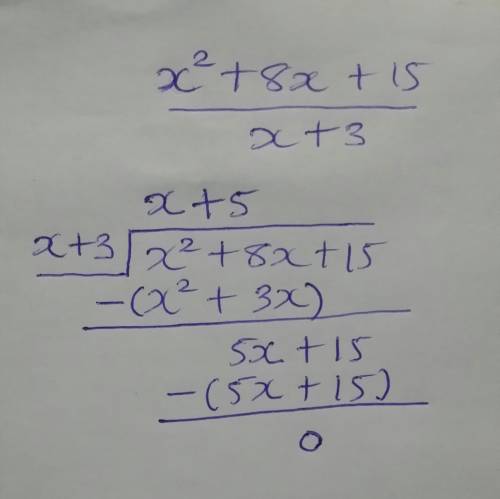 x² + 8x + 15
x + 3
x + 5
x + 3 x² + 8x + 15
-(x² + 3x)
5x + 15
-(5x + 15)
0